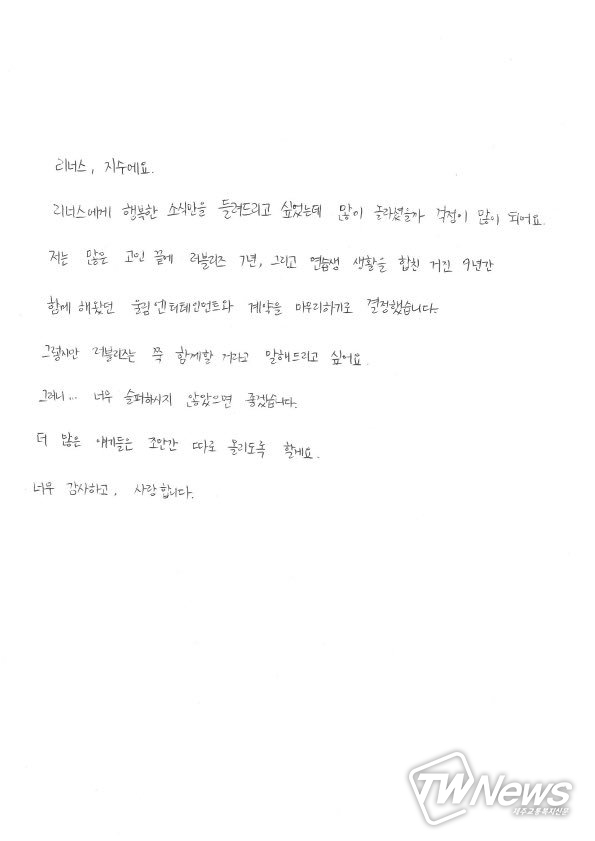 리너스, 지수에요.
리너스에게 행복한 소식만을 들려드리고 싶었는데 많이 놀라셨을까 걱정이 많이 되어요.
저는 많은 고민 끝에 러블리즈 7년, 그리고 연습생 생활을 합친 거진 9년간
함께 해왔던 울림엔터테인먼트와 계약을 마무리하기로 결정했습니다.
그렇지만 러블리즈는 쭉 함께할 거라고 말해드리고 싶어요.
그러니... 너무 슬퍼하시지 않았으면 좋겠습니다.
더 많은 얘기들은 조만간 따로 올리도록 할게요.
너무 감사하고, 사랑합니다.
TWNews
제주교통복지신문